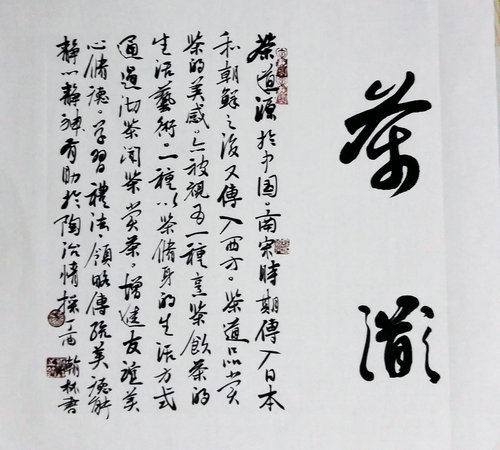 茶道
茶道源於中国。南宋時期傳入日本
和朝鮮之後又傳入西方。茶道品赏
茶的美感。亦被視为一種烹茶飲茶的
生活藝術。一種以茶脩身的生活方式
通過沏茶闻茶赏茶。增進友誼美
心脩德。学習禮法。領略傳統美德能
静心静神有助於陶冶情操 翰林书